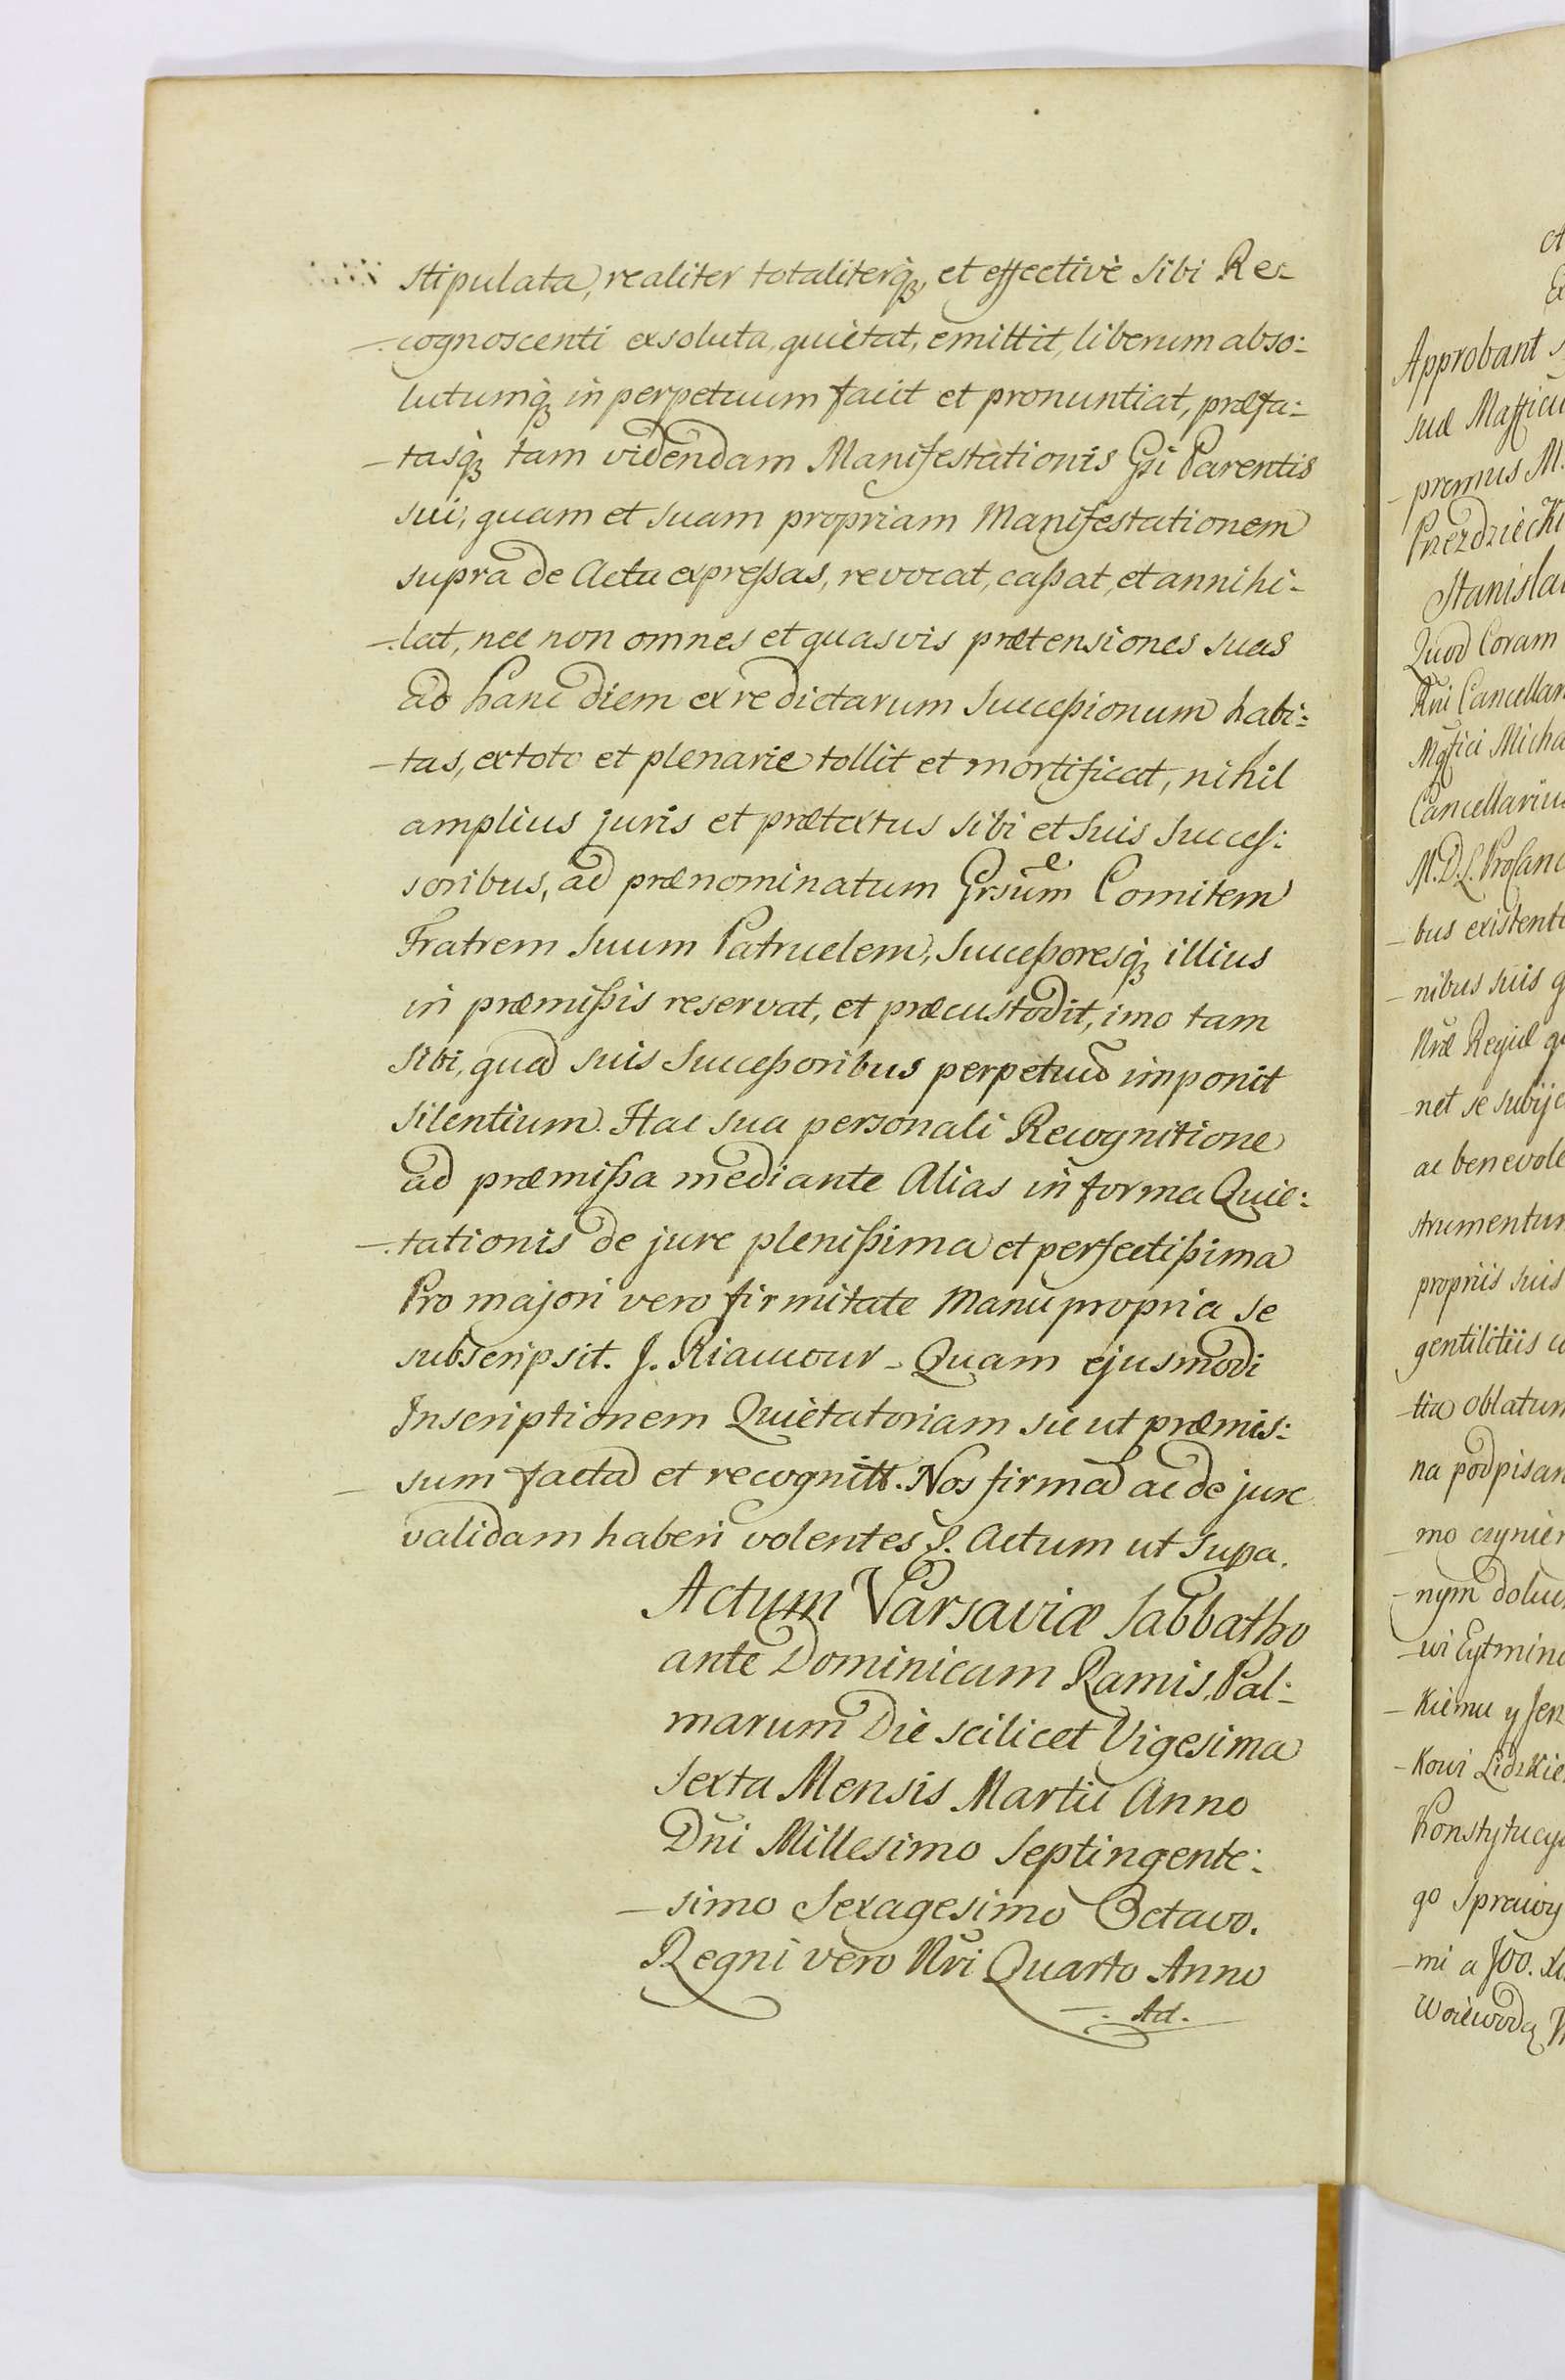 stipulata, realiter totaliterq3, et effective sibi Re-
-cognoscenti exsoluta, quietat, emittit, liberum abso:
lutumq3 in perpetuum facit et pronuntiat, præfa:
-tasq3 tam videndam Manifestationis Gsi Parentis
sui, quam et suam propriam Manifestationem
supra de Actu expreßas, revocat, caßat, et annihi-
-lat, nec non omnes et quasvis prætensiones suas
ad hanc diem ex re dictarum Succeßionum habi:
-tas, ex toto et plenarie tollit et mortificat, nihil
amplius juris et prætextus sibi et Suis Succes:
soribus, ad prænominatum Grsum Comitem
Fratrem Suum Patruelem, Succeßoresq3 illius
in præmißis reservat, et præcustodit, imo tam
Sibi, quad suis Succeßoribus perpetuo imponit
Silentium. Hac sua personali Recognitione
ad præmißa mediante Alias in forma Quie:
-tationis de jure plenißima et perfectißima
Pro majori vero firmitate Manu propria se
subscripsit. J. Riaucour - Quam ejusmodi
Inscriptionem Quietatoriam sic ut præmis:
-sum facta et recognitt. Nos firma ac de jure
validam haberi volentes §. Actum ut Supa.
Actum Varsaviæ Sabbatho
ante Dominicam Ramis. Pal:
marum Die scilicet Vigesima
Sexta Mensis Martii Anno
Dni Millesimo Septingente:
-simo Sexagesimo Octavo.
Regni vero Nri Quarto Anno
-. Ad.
Approbant
suæ Mafficu
-premus M.
Przezdziecki
Stanislai
Quod Coram
Rni Cancellar
Mgfici Micha
Cancellariu
M. D. L. ProCanc
-bus existenti
-nibus suis q
Nræ Regiæ qu
-net se subijc
ac benevole
strumentum
propriis suis
gentilitiis c
-tia oblatum
na podpisan
mo czynien
-nym dolu
-wi Eytmino
-kiemu y Jerz
-kowi Lidzkie
Konstytucy
go Sprawy
-mi a JOO. X
Woiewodą W